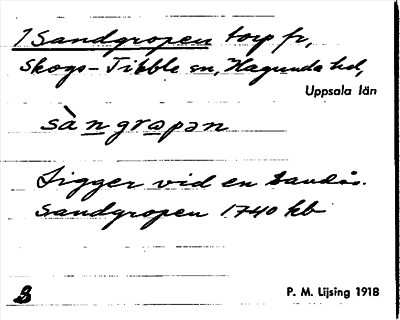 1 Sandgropen torp fr,
Skogs-Tibble sn, Hagunda hd,
Uppsala län
sàngrapan
Ligger vid en sandås.
Sandgropen 1740 kb
B
P. M. Lijsing 1918